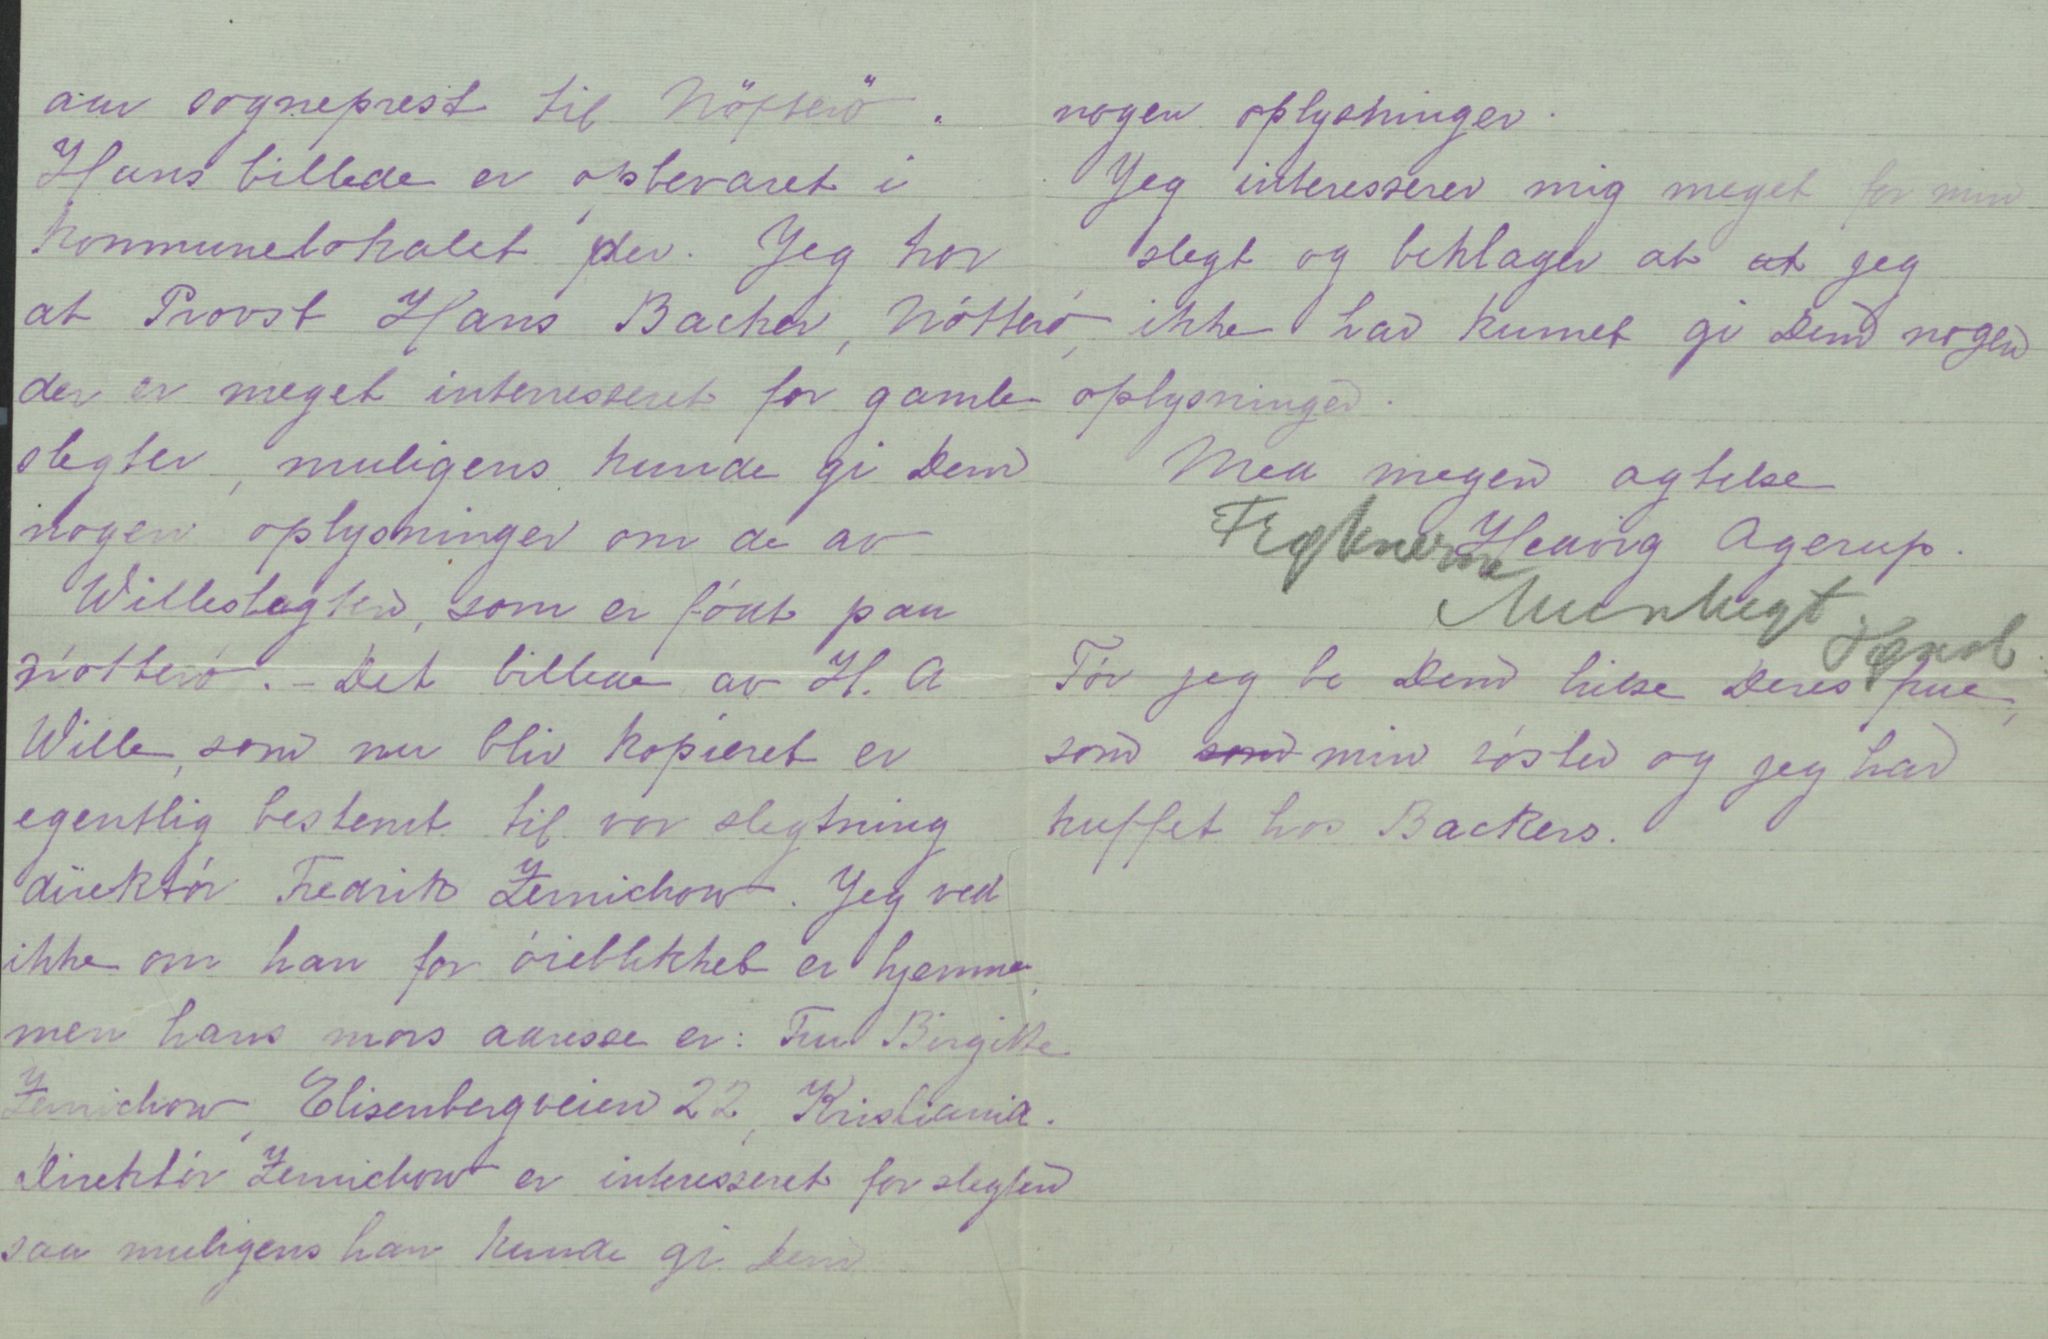 aar sogneprest til Nötterö.
Hans billede er opbevaret i
kommunelokalet der. Jeg tror
at Provst Hans Backer, Nötterö,
der er meget interresseret for gamle
slegter, muligens kunde gi Dem
nogen oplysninger om de av
Willeslegten, som er födt paa
Nötterö. - Det billede av H. A
Wille, som nu blir kopieret er
egentlig bestemt til vor slegtning
direktör Fredrik Zernichow. Jeg ved
ikke om han for öieblikket er hjemme,
men hans mors adresse er: Fru Birgitte
Zernichow, Elisenbergveien 22, Kristiania.
Direktör Zernichow er interesseret for slegten
saa muligens han kunde gi Dem
nogen oplysninger.
Jeg interesserer mig meget for min
slegt og beklager at at jeg
ikke har kunnet gi Dem nogen
oplysninger.
Med megen agtelse
Hedvig Agerup.
Tör jeg be Dem hilse Deres frue,
som som min söster og jeg har
truffet hos Backers.